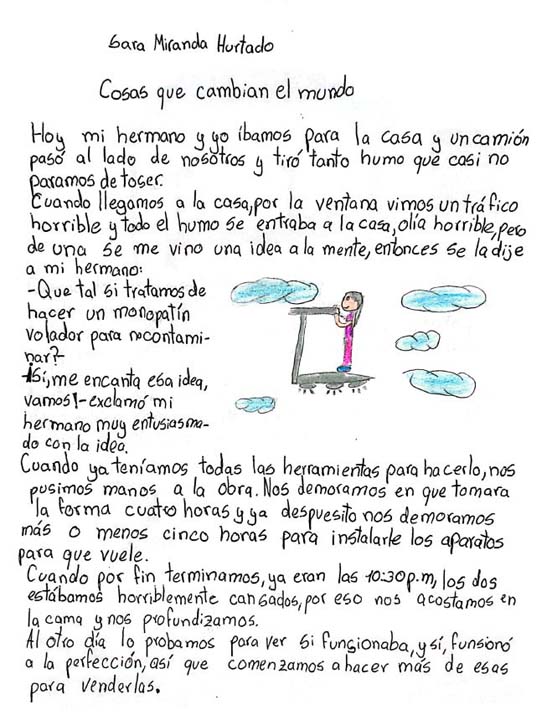 Sara Miranda Hurtado
Cosas que cambian el mundo
Hoy mi hermano y yo íbamos para la casa y un camión
pasó al lado de nosotros y tiró tanto humo que casi no
paramos de toser.
Cuando llegamos a la casa, por la ventana vimos un tráfico
horrible y todo el humo se entraba a la casa, olía horrible, pero
de una se me vino una idea a la mente, entonces se la dije
a mi hermano:
-Que tal si tratamos de
hacer un monopatín
volador para no contami-
nar?-
-¡Sí, me encanta esa idea,
vamos!-exclamó mi
hermano muy entusiasma-
do con la idea.
Cuando ya teníamos todas las herramientas para hacerlo, nos
pusimos manos a la obra. Nos demoramos en que tomara
la forma cuatro horas y ya despuesito nos demoramos
más o menos cinco horas para instalarle los aparatos
para que vuele.
Cuando por fin terminamos, ya eran las 10:30 p.m, los dos
estábamos horriblemente cansados, por eso nos acostamos en
la cama y nos profundizamos.
Al otro día lo probamos para ver si funcionaba, y sí, funsionó
a la perfección, así que comenzamos a hacer más de esas
para venderlas.